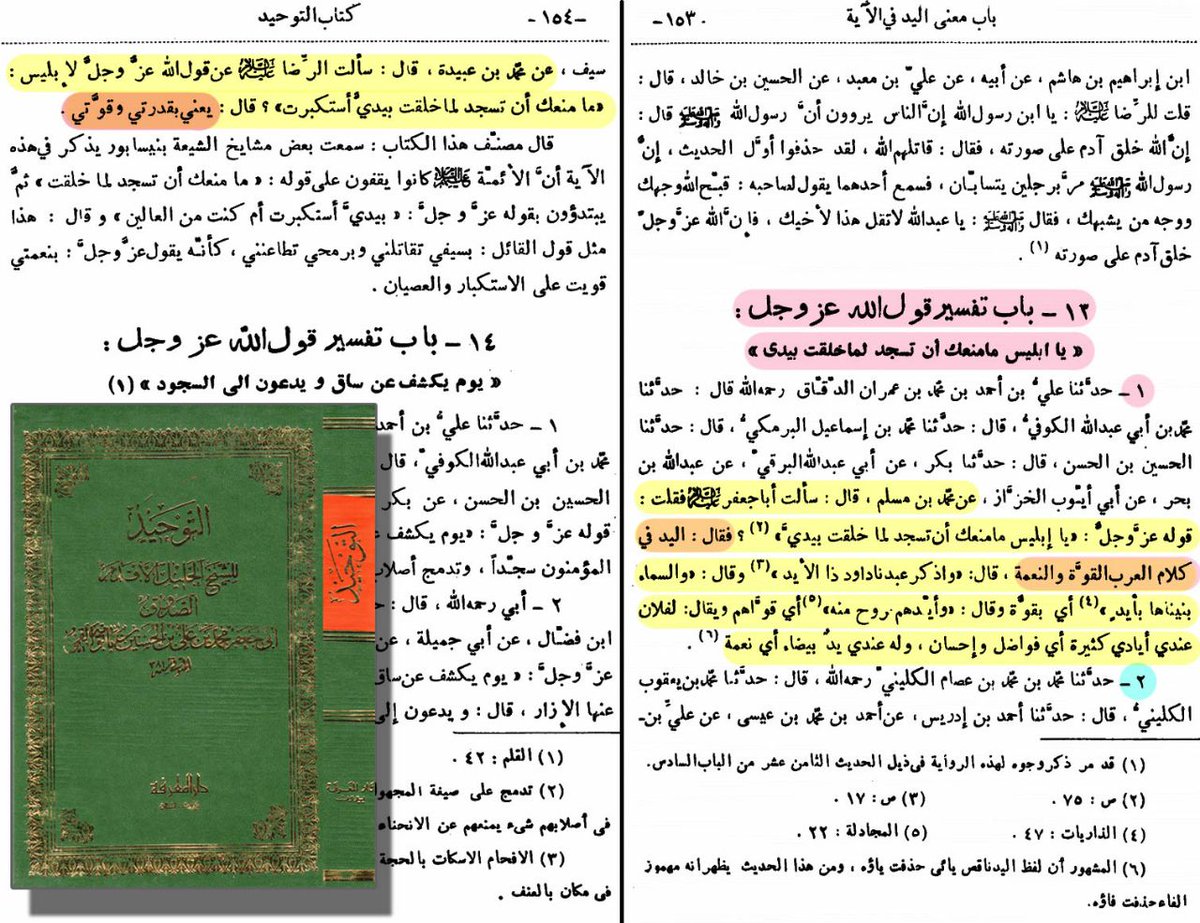 باب معنى اليد في الآية
-١٥٣٠
ابن إبراهيم بن هاشم ، عن أبيه ، عن عليّ بن معبد ، عن الحسين بن خالد ، قال :
قلت للرِّضا عليه السلام : يا ابن رسول الله إنَّ الناس يروون أنَّ رسول الله ﷺ قال :
إنَّ الله خلق آدم على صورته ، فقال : قاتلهم الله ، لقد حذفوا أوَّل الحديث ، إنَّ
رسول الله ﷺ مرَّ برجلين يتسابّان ، فسمع أحدهما يقول لصاحبه : قبّح الله وجهك
ووجه من يشبهك ، فقال ﷺ : يا عبدالله لا تقل هذا لأخيك ، فإنَّ الله عزَّ وجلَّ
خلق آدم على صورته (١) .
١٣ - باب تفسير قول الله عز وجل :
« يا ابليس مامنعك أن تسجد لما خلقت بيدى »
١ - حدَّثنا عليُّ بن أحمد بن محمّد بن عمران الدقّاق رحمه الله قال : حدَّثنا
محمّد بن أبي عبدالله الكوفيُّ ، قال : حدَّثنا محمّد بن إسماعيل البرمكيُّ ، قال : حدَّثنا
الحسين بن الحسن ، قال : حدَّثنا بكر ، عن أبي عبدالله البرقيّ ، عن عبدالله بن
بحر ، عن أبي أيّوب الخزَّاز ، عن محمّد بن مسلم ، قال : سألت أبا جعفر عليه السلام فقلت :
قوله عزَّ وجلَّ : « يا إبليس مامنعك أن تسجد لما خلقت بيديَّ » (٢) ؟ فقال : اليد في
كلام العرب القوَّة والنعمة ، قال : «واذكر عبدنا داود ذا الأيد »(٣) وقال : «والسماء
بنيناها بأيد »(٤) أي بقوَّة وقال : «وأيّدهم بروح منه»(٥) أي قوَّاهم ويقال : لفلان
عندي أيادي كثيرة أي فواضل وإحسان ، وله عندي يدٌ بيضاء أي نعمة (٦) .
٢ - حدَّثنا محمّد بن محمّد بن عصام الكلينيّ رحمه الله ، قال : حدَّثنا محمّد بن يعقوب
الكلينيُّ ، قال : حدَّثنا أحمد بن إدريس ، عن أحمد بن محمّد بن عيسى ، عن عليِّ بن-
(١) قد مر ذكر وجوه لهذه الرواية في ذيل الحديث الثامن عشر من الباب السادس.
(٢) ص : ٧٥ . (٣) ص : ١٧ .
(٤) الذاريات : ٤٧ . (٥) المجادلة : ٢٢ .
(٦) المشهور أن لفظ اليد ناقص يائى حذفت ياؤه ، ومن هذا الحديث يظهر انه مهموز
الفاء حذفت فاؤه.
كتاب التوحيد
-١٥٤-
سيف ، عن محمّد بن عبيدة ، قال : سألت الرِّضا عليه السلام عن قول الله عزَّ وجلَّ لإبليس :
«ما منعك أن تسجد لما خلقت بيديَّ أستكبرت» ؟ قال : يعني بقدرتي وقوَّتي .
قال مصنّف هذا الكتاب : سمعت بعض مشايخ الشيعة بنيسابور يذكر في هذه
الآية أنَّ الأئمّة عليهم السلام كانوا يقفون على قوله : « ما منعك أن تسجد لما خلقت » ثمَّ
يبتدؤون بقوله عزَّ وجلَّ : « بيديَّ أستكبرت أم كنت من العالين » وقال : هذا
مثل قول القائل : بسيفي تقاتلني وبرمحي تطاعنني ، كأنّه يقول عزَّ وجلَّ : بنعمتي
قويت على الاستكبار والعصيان .
١٤ - باب تفسير قول الله عز وجل :
« يوم يكشف عن ساق و يدعون الى السجود » (١)
١ - حدَّثنا عليُّ بن أحمد
محمّد بن أبي عبدالله الكوفيّ ، قال
الحسين بن الحسن ، عن بكر
قوله عزَّ وجلَّ : «يوم يكشف ع
المؤمنون سجّداً ، وتدمج أصلاب
٢ - أبي رحمه الله ، قال : حد
ابن فضّال ، عن أبي جميلة ، عن
عزَّ وجلَّ : « يوم يكشف عن ساق
عنها الإزار ، قال : و يدعون إلى
(١) القلم : ٤٢ .
(٢) تدمج على صيغة المجهول
فى أصلابهم شىء يمنعهم عن الانحناء
(٣) الافحام الاسكات بالحجة
فى مكان بالعنف .
التوحيد
للشيخ الجليل الأقدم
الصدوق
أبي جعفر محمد بن علي بن الحسين بن بابويه القمي
المتوفى ٣٨١
دار المعرفة
التوحيد